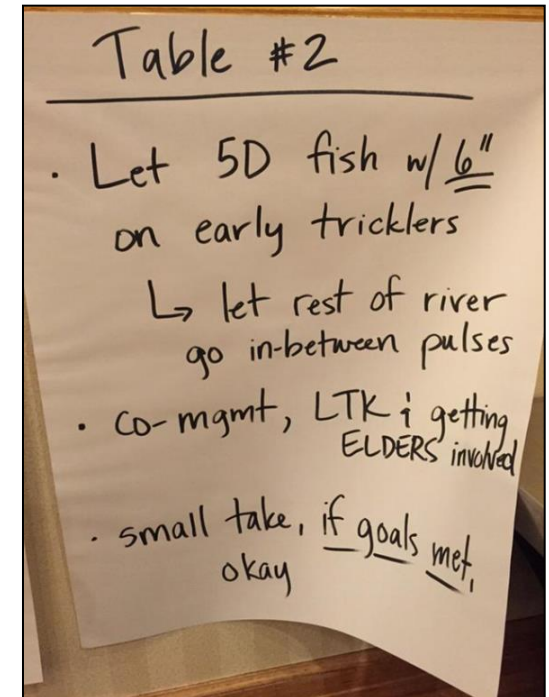 Table #2
· Let 5D fish w/ 6"
on early tricklers
↳ let rest of river
go in-between pulses
· co-mgmt, LTK & getting
ELDERS involved
· small take, if goals met,
okay